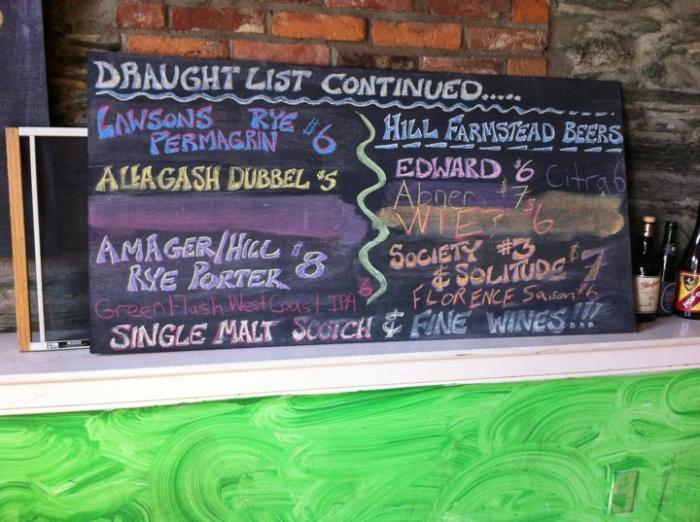 DRAUGHT LIST CONTINUED.....
LAWSONS RYE $6
PERMAGRIN
ALLAGASH DUBBEL $5
AMAGER/HILL $8
RYE PORTER
Green Flash West Coast IPA 6
HILL FARMSTEAD BEERS
EDWARD $6
Citra 6
Abner $7
WIT $6
SOCIETY #3 $7
& SOLITUDE
FLORENCE Saison $6
SINGLE MALT SCOTCH & FINE WINES!!!